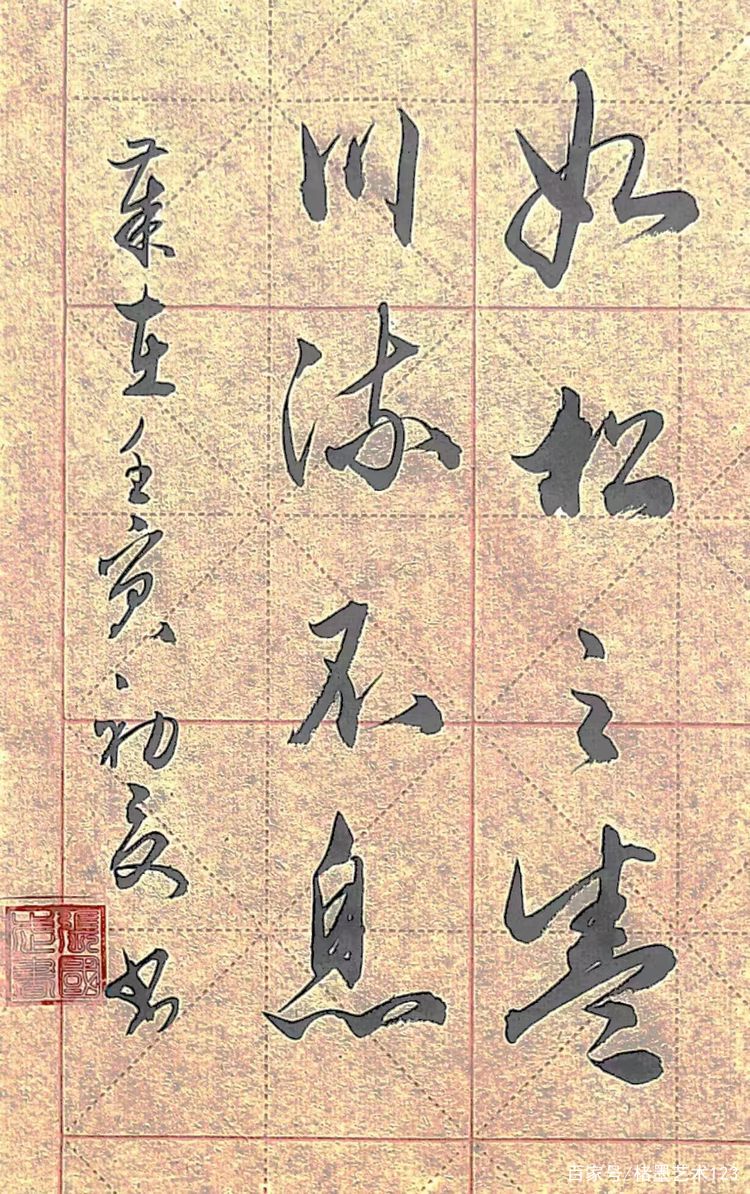 如松之盛
川流不息
岁在壬寅初夏书
張國
百家号/楮墨艺术123